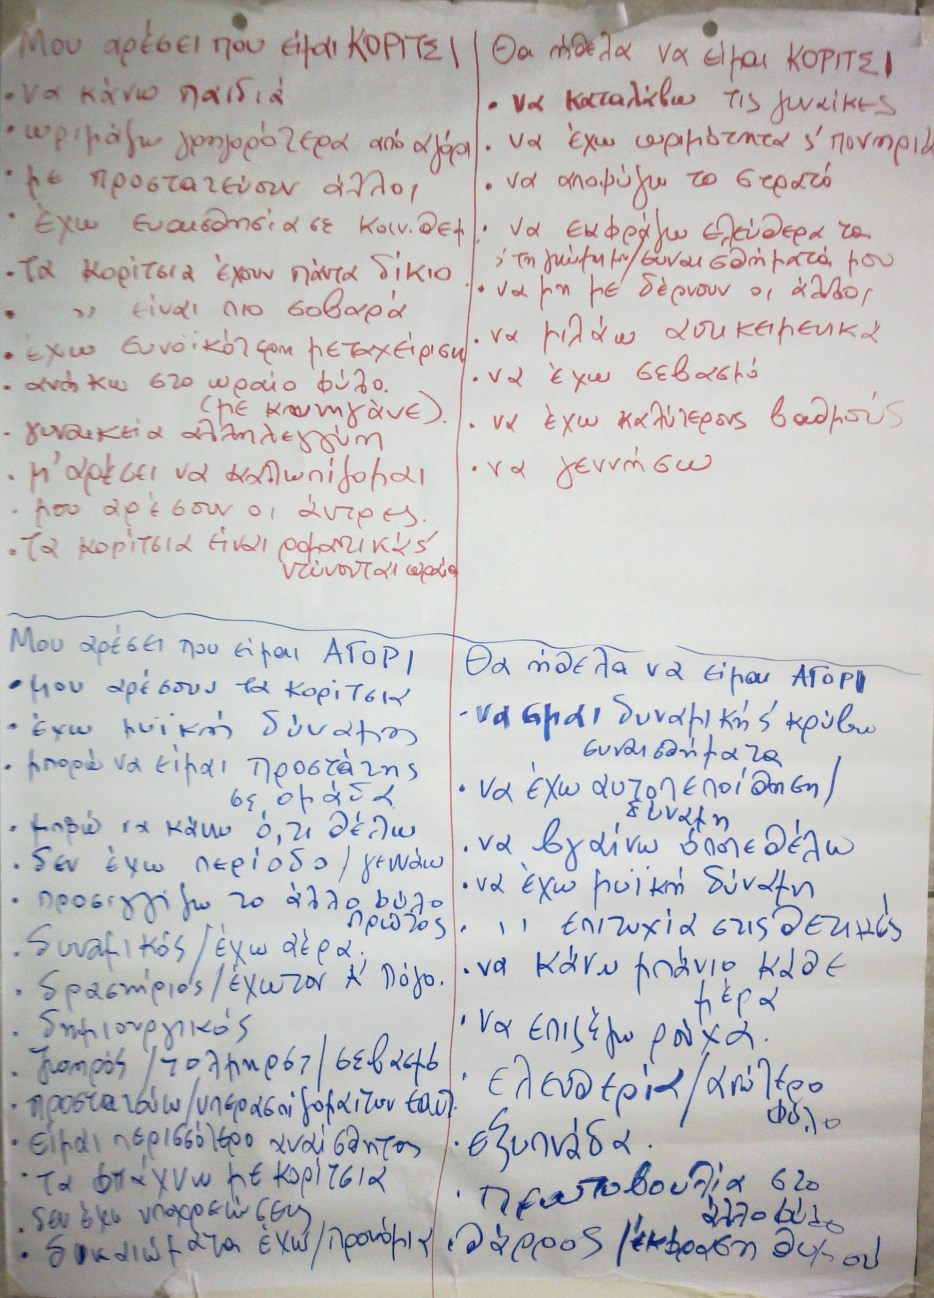 Μου αρέσει που είμαι ΚΟΡΙΤΣΙ
• να κάνω παιδιά
• ωριμάζω γρηγορότερα από αγόρι
• με προστατεύουν άλλοι
• έχω ευαισθησία σε κοιν. θεμ.
• τα κορίτσια έχουν πάντα δίκιο
• ,, είναι πιο σοβαρά
• έχω ευνοϊκότερη μεταχείριση
• ανήκω στο ωραίο φύλο.
(με κυνηγάνε).
• γυναικεία αλληλεγγύη
• μ' αρέσει να καλλωπίζομαι
• μου αρέσουν οι άντρες.
• τα κορίτσια είναι ρομαντικά ς'
ντύνονται ωραία
Θα ήθελα να είμαι ΚΟΡΙΤΣΙ
• να καταλάβω τις γυναίκες
• να έχω ωριμότητα ς' πονηριά
• να αποφύγω το στρατό
• να εκφράζω ελεύθερα τα
ς' τη γνώμη μ/συναισθήματά μου
• να μη με δέρνουν οι άλλοι
• να μιλάω αντικειμενικά
• να έχω σεβασμό
• να έχω καλύτερους βαθμούς
• να γεννήσω
Μου αρέσει που είμαι ΑΓΟΡΙ
• μου αρέσουν τα κορίτσια
• έχω μυϊκή δύναμη
• μπορώ να είμαι προστάτης
σε ομάδα
• μπορώ να κάνω ό,τι θέλω
• δεν έχω περίοδο/γεννάω
• προσεγγίζω το άλλο φύλο
πρώτος
• δυναμικός/έχω αέρα.
• δραστήριος/έχω τον Α' λόγο.
• δημιουργικός
• /τολμηρός/σεβασμό
• προστατεύω/υπερασπίζομαι τον εαυτ.
• είμαι περισσότερο αναίσθητος
• τα φτιάχνω με κορίτσια
• δεν έχω υποχρεώσεις
• δικαιώματα έχω/προνόμια
Θα ήθελα να είμαι ΑΓΟΡΙ
• να είμαι δυναμικής ς' κρύβω
συναισθήματα
• να έχω αυτοπεποίθηση/
δύναμη
• να βγαίνω όποτε θέλω
• να έχω μυϊκή δύναμη
• ,, επιτυχία στις θετικές
• να κάνω μπάνιο κάθε
μέρα
• να επιλέγω ρούχα.
• ελευθερία/
φύλο
• εξυπνάδα.
• πρωτοβουλία στο
άλλο φύλο
• θάρρος/έκφραση θυμού